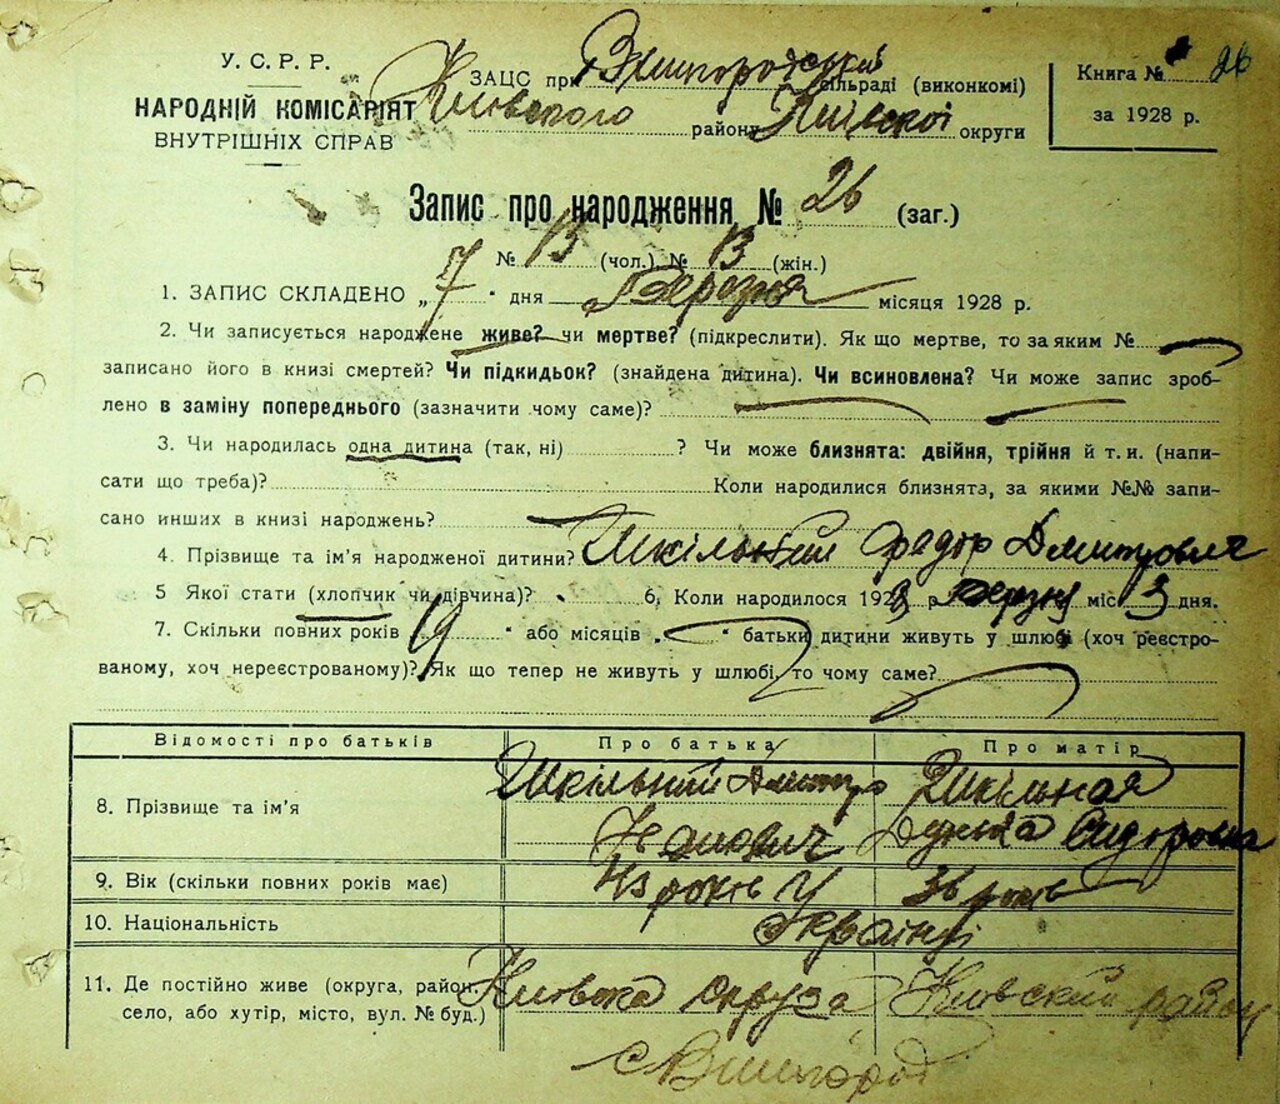 У. С. Р. Р.
НАРОДНІЙ КОМІСАРІЯТ
ВНУТРІШНІХ СПРАВ
ЗАЦС при Вишгородський сільраді (виконкомі)
Київского району Київскої округи
Книга № 26
за 1928 р.
Запис про народження № 26 (заг.)
№ 13 (чол.) № 13 (жін.)
1. ЗАПИС СКЛАДЕНО „7" дня Березня місяця 1928 р.
2. Чи записується народжене живе? чи мертве? (підкреслити). Як що мертве, то за яким №
записано його в книзі смертей? Чи підкидьок? (знайдена дитина). Чи всиновлена? Чи може запис зроб-
лено в заміну попереднього (зазначити чому саме)?
3. Чи народилась одна дитина (так, ні) ? Чи може близнята: двійня, трійня й т. и. (напи-
сати що треба)? Коли народилися близнята, за якими №№ запи-
сано инших в книзі народжень?
4. Прізвище та ім'я народженої дитини? Шкільний Федор Дмитрович
5 Якої стати (хлопчик чи дівчина)? 6, Коли народилося 1928 р Березня міс 3 дня.
7. Скільки повних років „19" або місяців „ " батьки дитини живуть у шлюбі (хоч реєстро-
ваному, хоч нереєстрованому)? Як що тепер не живуть у шлюбі, то чому саме?
Відомості про батьків Про батька Про матір
8. Прізвище та ім'я Шкільний Дмитро Шкільная
Іванович Сидоровна
9. Вік (скільки повних років має) 43 років 36 років
10. Національність Українці
11. Де постійно живе (округа, район, Киівска округа Киовский район
село, або хутір, місто, вул. № буд.)
с Вишгород